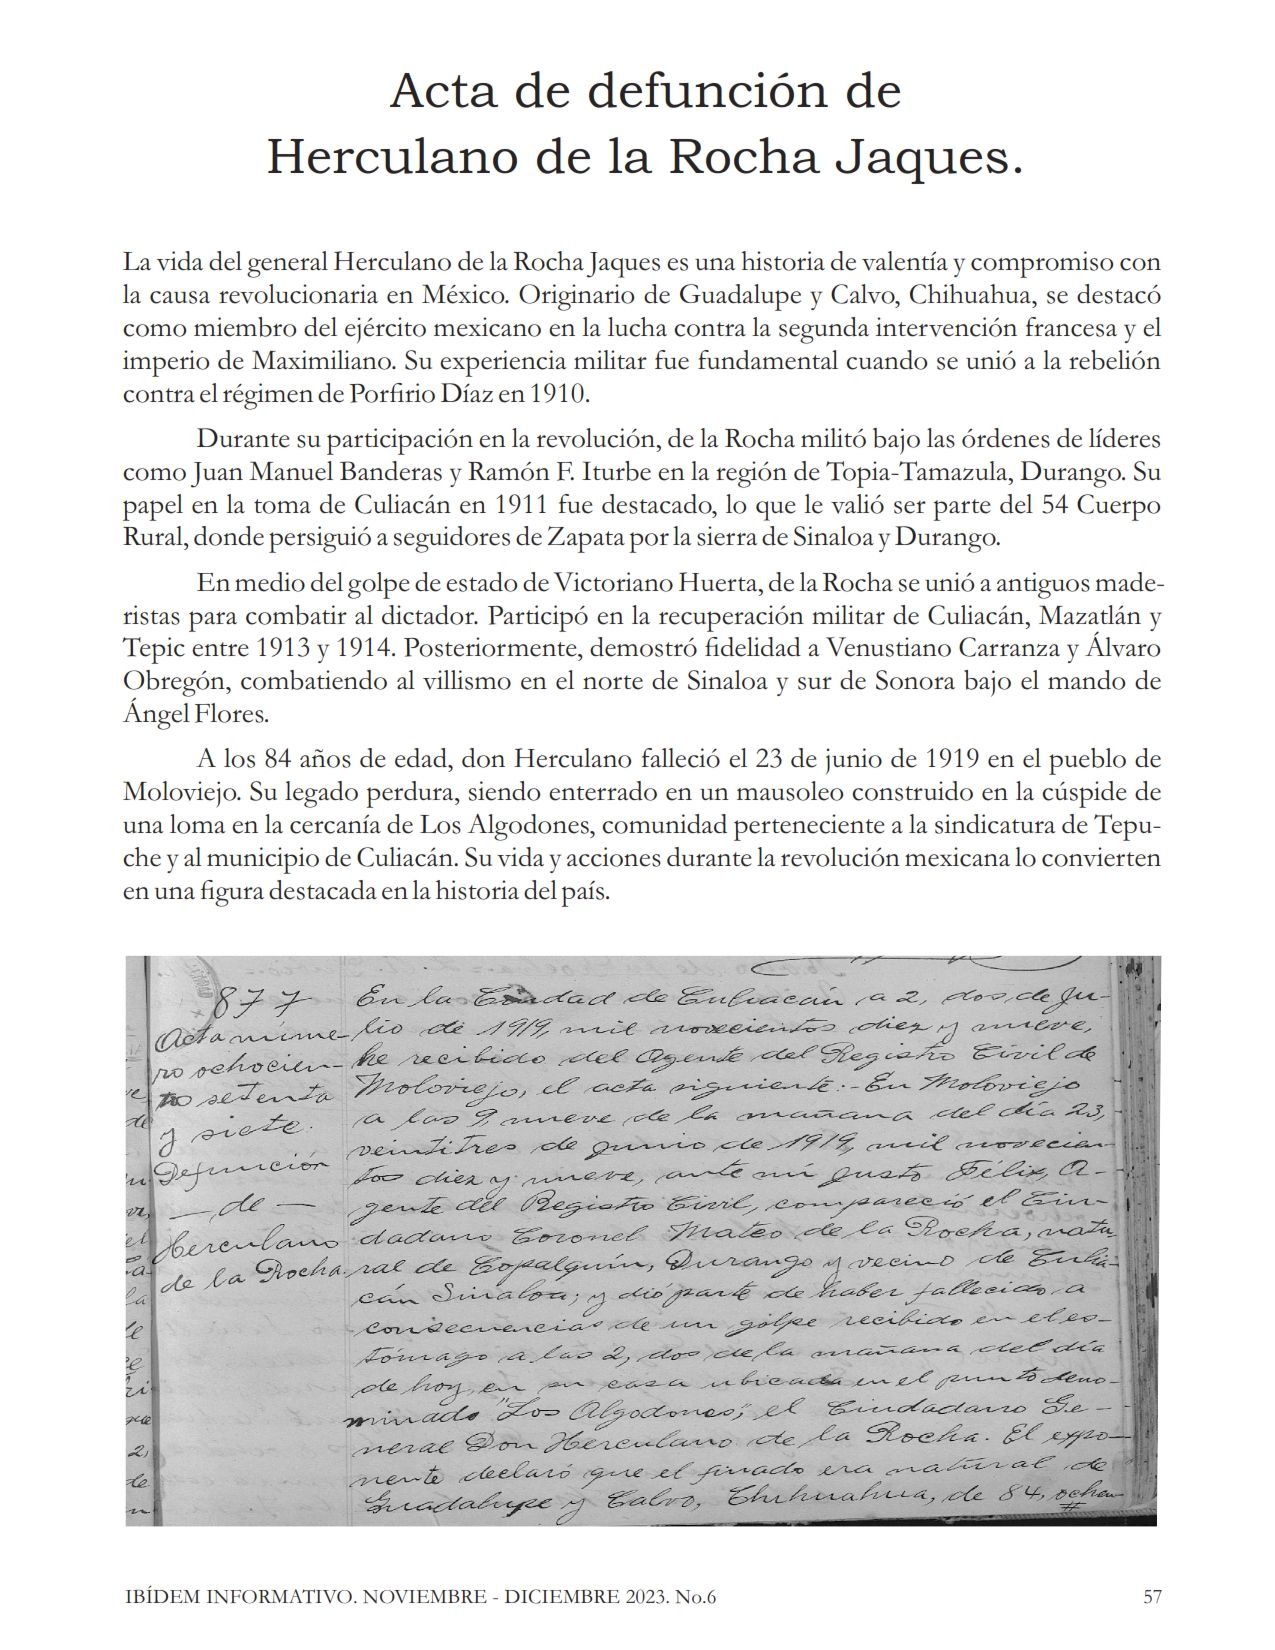 Acta de defunción de
Herculano de la Rocha Jaques.
La vida del general Herculano de la Rocha Jaques es una historia de valentía y compromiso con
la causa revolucionaria en México. Originario de Guadalupe y Calvo, Chihuahua, se destacó
como miembro del ejército mexicano en la lucha contra la segunda intervención francesa y el
imperio de Maximiliano. Su experiencia militar fue fundamental cuando se unió a la rebelión
contra el régimen de Porfirio Díaz en 1910.
Durante su participación en la revolución, de la Rocha militó bajo las órdenes de líderes
como Juan Manuel Banderas y Ramón F. Iturbe en la región de Topia-Tamazula, Durango. Su
papel en la toma de Culiacán en 1911 fue destacado, lo que le valió ser parte del 54 Cuerpo
Rural, donde persiguió a seguidores de Zapata por la sierra de Sinaloa y Durango.
En medio del golpe de estado de Victoriano Huerta, de la Rocha se unió a antiguos made-
ristas para combatir al dictador. Participó en la recuperación militar de Culiacán, Mazatlán y
Tepic entre 1913 y 1914. Posteriormente, demostró fidelidad a Venustiano Carranza y Álvaro
Obregón, combatiendo al villismo en el norte de Sinaloa y sur de Sonora bajo el mando de
Ángel Flores.
A los 84 años de edad, don Herculano falleció el 23 de junio de 1919 en el pueblo de
Moloviejo. Su legado perdura, siendo enterrado en un mausoleo construido en la cúspide de
una loma en la cercanía de Los Algodones, comunidad perteneciente a la sindicatura de Tepu-
che y al municipio de Culiacán. Su vida y acciones durante la revolución mexicana lo convierten
en una figura destacada en la historia del país.
877
Acta núme-
ro ochocien-
tos setenta
y siete.
Defunción
— de —
Herculano
de la Rocha.
En la Ciudad de Culiacán a 2, dos, de Ju-
lio de 1919, mil novecientos diez y nueve,
he recibido del Agente del Registro Civil de
Moloviejo, el acta siguiente:- En Moloviejo
a las 9, nueve de la mañana del día 23,
veintitres de junio de 1919, mil novecien-
tos diez y nueve, ante mí Justo Félix, A-
gente del Registro Civil, compareció el Ciu-
dadano Coronel Mateo de la Rocha, natu-
ral de Copalquín, Durango y vecino de Culia-
cán Sinaloa; y dio parte de haber fallecido a
consecuencias de un golpe recibido en el es-
tómago a las 2, dos de la mañana del día
de hoy, en su casa ubicada en el punto deno-
minado "Los Algodones", el Ciudadano Ge-
neral Don Herculano de la Rocha. El expo-
nente declaró que el finado era natural de
Guadalupe y Calvo, Chihuahua, de 84, ochen-
IBÍDEM INFORMATIVO. NOVIEMBRE - DICIEMBRE 2023. No.6
57